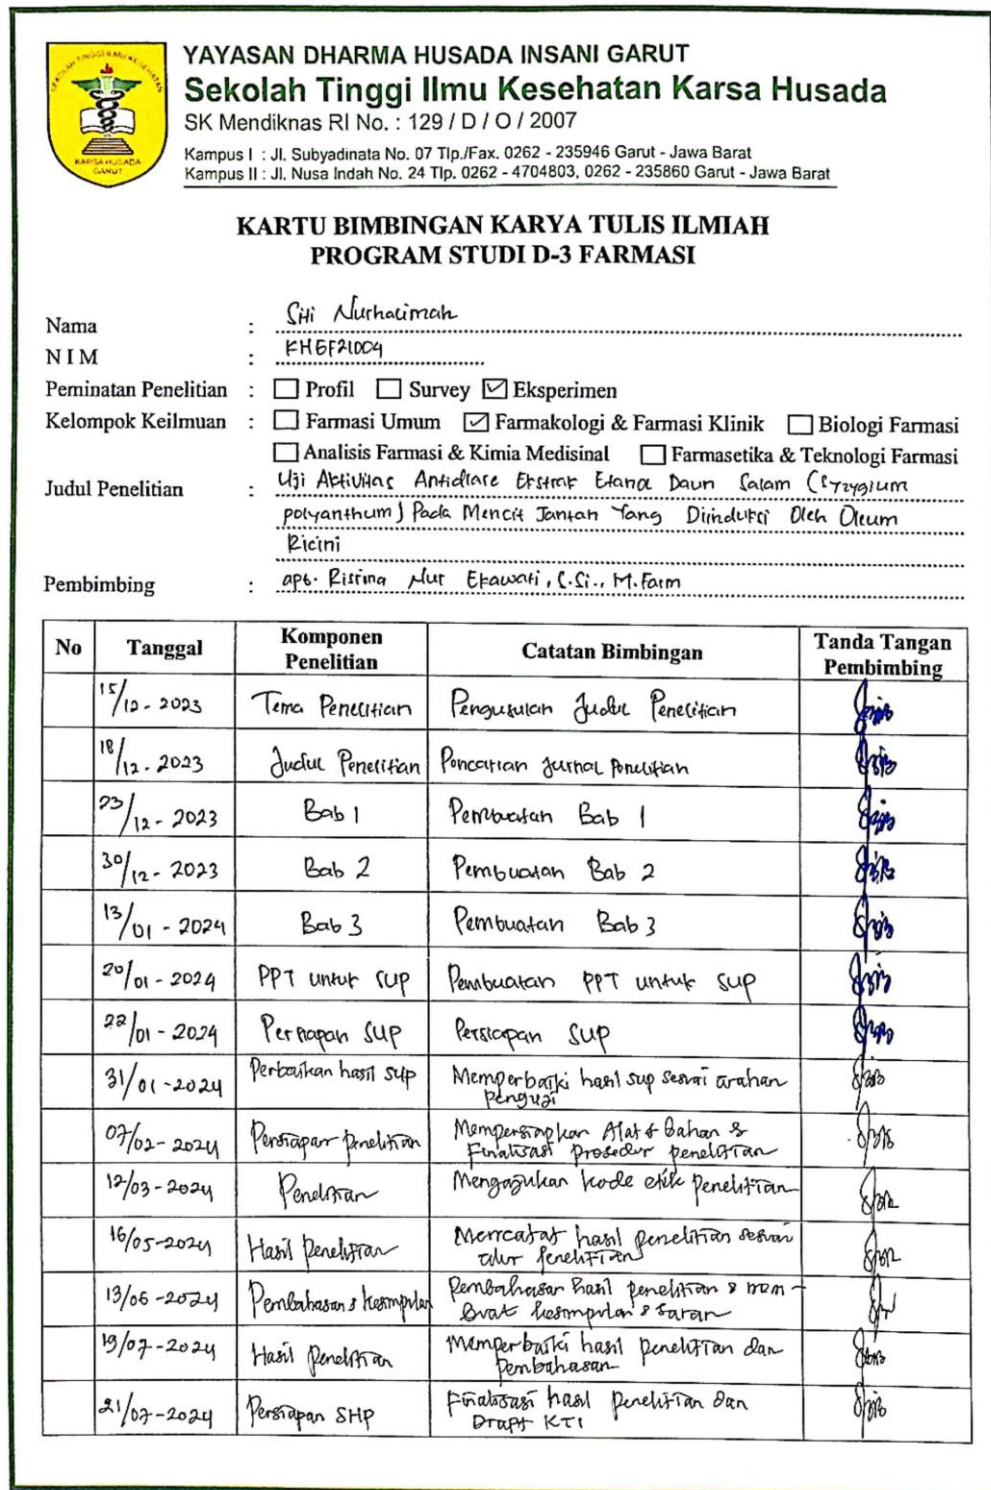 SEKOLAH TINGGI ILMU KESEHATAN
KARSA HUSADA
GARUT
YAYASAN DHARMA HUSADA INSANI GARUT
Sekolah Tinggi Ilmu Kesehatan Karsa Husada
SK Mendiknas RI No. : 129 / D / O / 2007
Kampus I : Jl. Subyadinata No. 07 Tlp./Fax. 0262 - 235946 Garut - Jawa Barat
Kampus II : Jl. Nusa Indah No. 24 Tlp. 0262 - 4704803, 0262 - 235860 Garut - Jawa Barat
KARTU BIMBINGAN KARYA TULIS ILMIAH
PROGRAM STUDI D-3 FARMASI
Nama : Siti Nurhalimah
NIM : KHGF21004
Peminatan Penelitian : Profil Survey Eksperimen
Kelompok Keilmuan : Farmasi Umum Farmakologi & Farmasi Klinik Biologi Farmasi
Analisis Farmasi & Kimia Medisinal Farmasetika & Teknologi Farmasi
Judul Penelitian : Uji Aktivitas Antidiare Ekstrak Etanol Daun Salam (Syzygium
polyanthum) Pada Mencit Jantan Yang Diinduksi Oleh Oleum
Ricini
Pembimbing : apt. Ristina Nur Ekawati, S.Si., M.Farm
No Tanggal Komponen Penelitian Catatan Bimbingan Tanda Tangan Pembimbing
15/12 - 2023 Tema Penelitian Pengusulan Judul Penelitian
18/12 - 2023 Judul Penelitian Pencarian Jurnal Penelitian
23/12 - 2023 Bab 1 Pembuatan Bab 1
30/12 - 2023 Bab 2 Pembuatan Bab 2
13/01 - 2024 Bab 3 Pembuatan Bab 3
20/01 - 2024 PPT untuk SUP Pembuatan PPT untuk SUP
22/01 - 2024 Persiapan SUP Persiapan SUP
31/01 - 2024 Perbaikan hasil sup Memperbaiki hasil sup sesuai arahan
penguji
07/02 - 2024 Persiapan penelitian Mempersiapkan Alat & Bahan &
Finalisasi prosedur penelitian
12/03 - 2024 Penelitian Mengajukan kode etik penelitian
16/05 - 2024 Hasil penelitian Mencatat hasil penelitian sesuai
alur penelitian
13/06 - 2024 Pembahasan & kesimpulan Pembahasan hasil penelitian & mem-
buat kesimpulan & saran
19/07 - 2024 Hasil Penelitian Memperbaiki hasil penelitian dan
Pembahasan
21/07 - 2024 Persiapan SHP Finalisasi hasil penelitian dan
Draft KTI